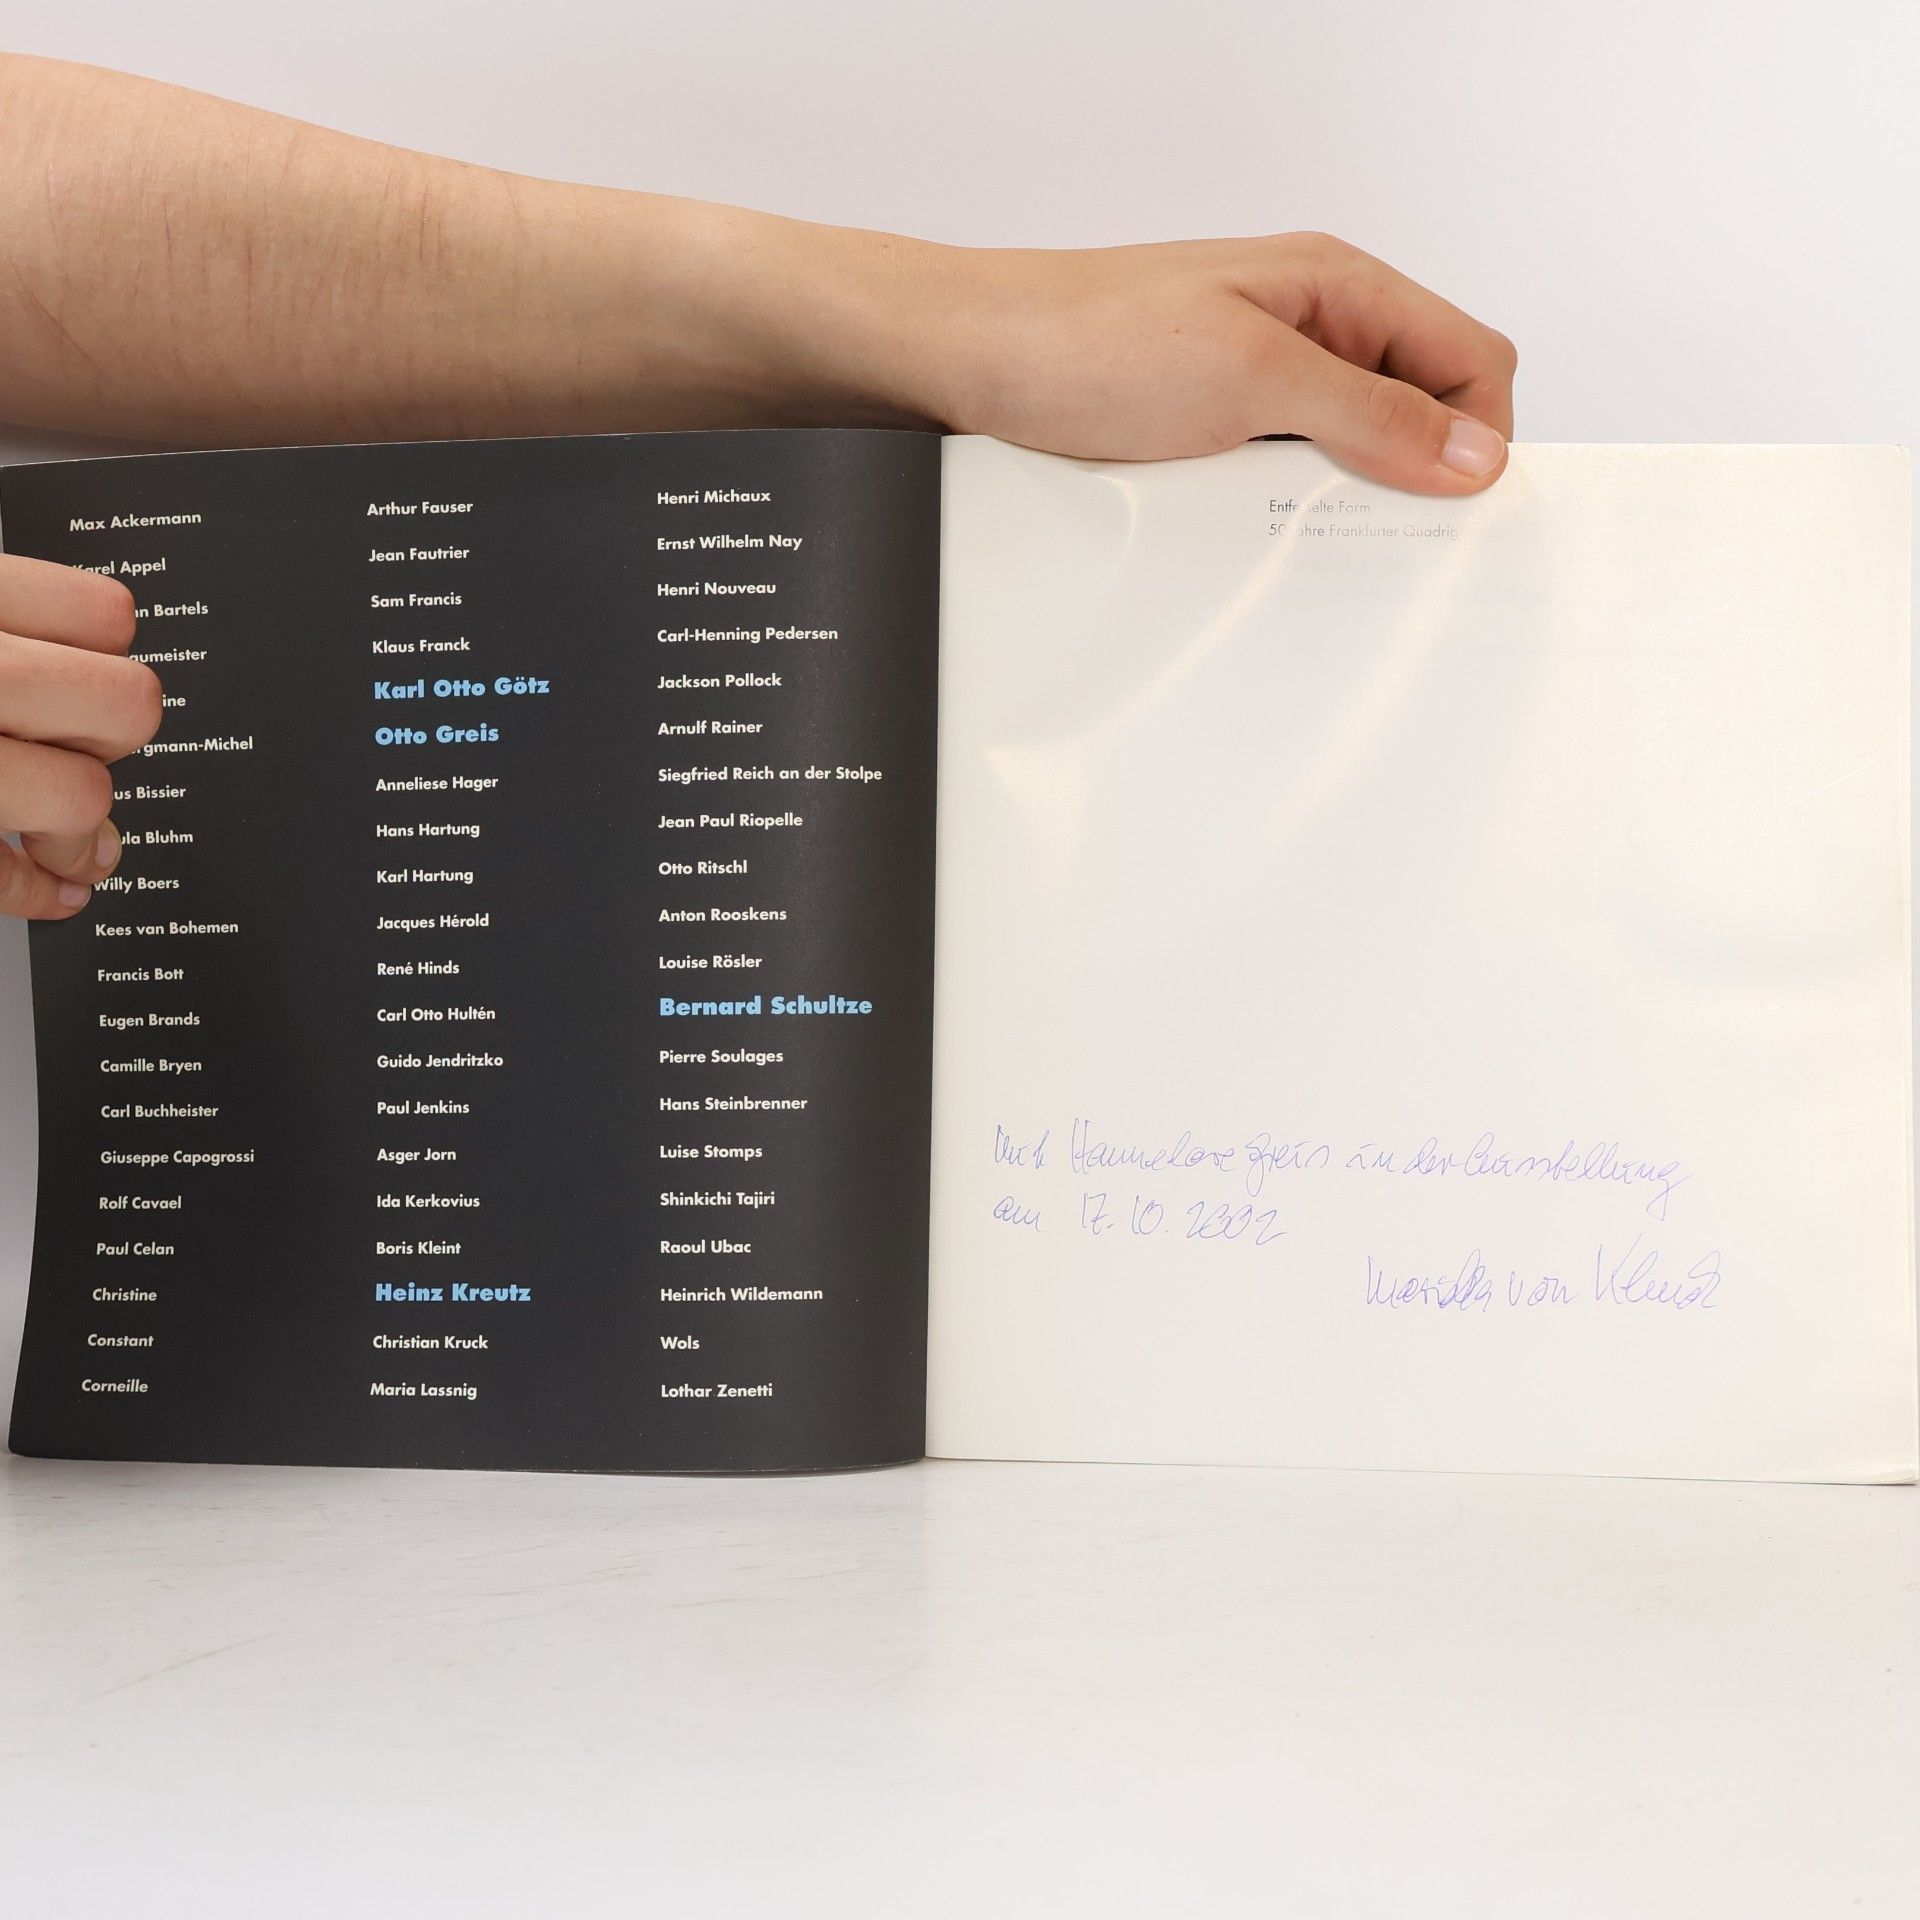 Max Ackermann
Karel Appel
Bartels
Bissier
Bluhm
Willy Boers
Kees van Bohemen
Francis Bott
Eugen Brands
Camille Bryen
Carl Buchheister
Giuseppe Capogrossi
Rolf Cavael
Paul Celan
Christine
Constant
Corneille
Arthur Fauser
Jean Fautrier
Sam Francis
Klaus Franck
Karl Otto Götz
Otto Greis
Anneliese Hager
Hans Hartung
Karl Hartung
Jacques Hérold
René Hinds
Carl Otto Hultén
Guido Jendritzko
Paul Jenkins
Asger Jorn
Ida Kerkovius
Boris Kleint
Heinz Kreutz
Christian Kruck
Maria Lassnig
Henri Michaux
Ernst Wilhelm Nay
Henri Nouveau
Carl-Henning Pedersen
Jackson Pollock
Arnulf Rainer
Siegfried Reich an der Stolpe
Jean Paul Riopelle
Otto Ritschl
Anton Rooskens
Louise Rösler
Bernard Schultze
Pierre Soulages
Hans Steinbrenner
Luise Stomps
Shinkichi Tajiri
Raoul Ubac
Heinrich Wildemann
Wols
Lothar Zenetti
Entfesselte Form
50 Jahre Frankfurter Quadriga
Mit Hannelore Greis in der Ausstellung
am 17.10.2002
von